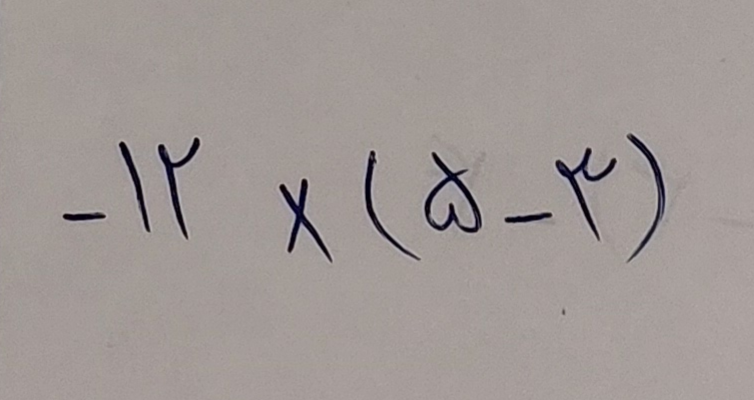 -۱۲ × (۵-۳)